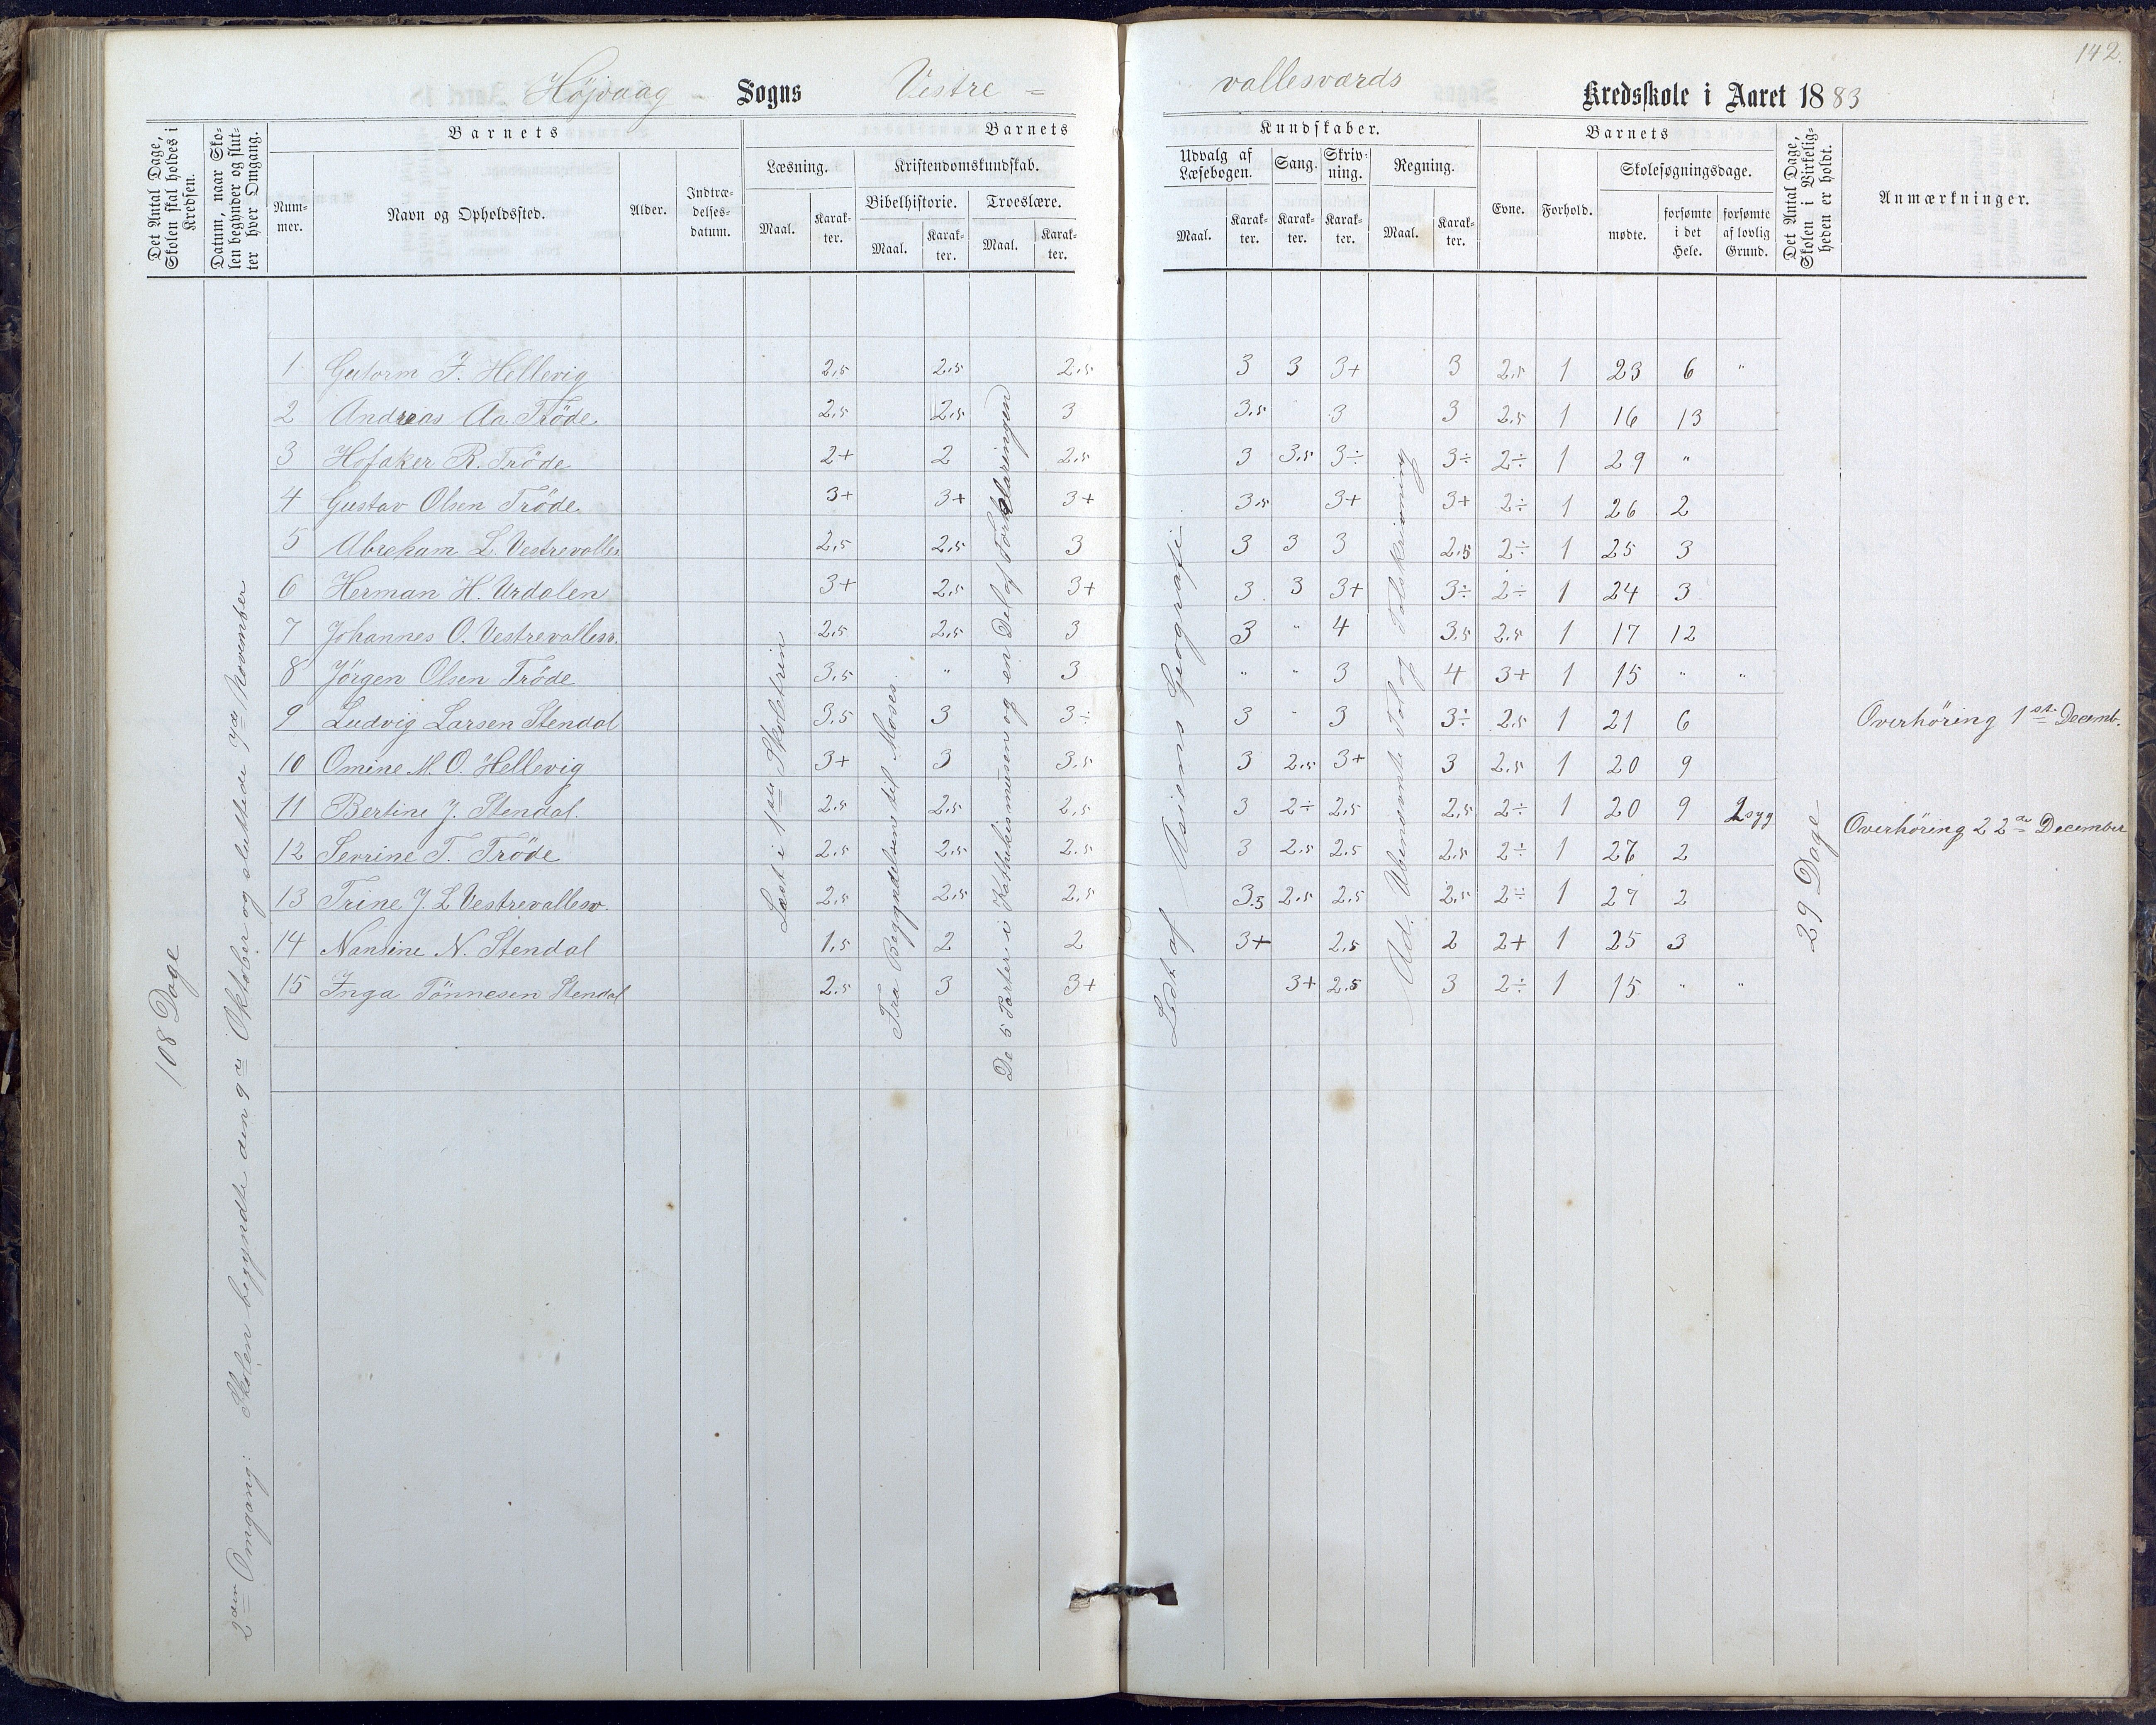 142.
Højvaag Sogns Vestre = vallesværds Kredsskole i Aaret 1883
Det Antal Dage, Skolen skal holdes i Kredsen.
Datum, naar Skolen begynder og slutter hver Omgang.
Barnets
Nummer.
Navn og Opholdssted.
Alder.
Indtrædelsesdatum.
Barnets Kundskaber.
Læsning.
Maal.
Karakter.
Kristendomskundskab.
Bibelhistorie.
Maal.
Karakter.
Troeslære.
Maal.
Karakter.
Udvalg af Læsebogen.
Maal.
Karakter.
Sang.
Karakter.
Skrivning.
Karakter.
Regning.
Maal.
Karakter.
Barnets
Evne.
Forhold.
Skolesøgningsdage.
mødte.
forsømte i det Hele.
forsømte af lovlig Grund.
Det Antal Dage, Skolen i Virkeligheden er holdt.
Anmærkninger.
108 Dage
2den Omgang: Skolen begyndte den 9de Oktober og sluttede 7de November
Læst i 1ste Skoletrin
Fra Begyndelsen til Moses.
De 5 Parter i Katekismusen og en Del af Forklaringen
Lidt af Asiens Geografi.
Ad. Ubenævnte Tal og Talskrivning
29 Dage
1 Gutorm F. Hellevig 2,5 2,5 2,5 3 3 3+ 3 2,5 1 23 6 "
2 Andreas Aa. Trøde 2,5 2,5 3 3,5 3 3 2,5 1 16 13
3 Hofaker R. Trøde 2+ 2 2,5 3 3,5 3÷ 3÷ 2÷ 1 29 "
4 Gustav Olsen Trøde 3+ 3+ 3+ 3,5 3+ 3+ 2÷ 1 26 2
5 Abreham L. Vestrevalles. 2,5 2,5 3 3 3 3 2,5 2÷ 1 25 3
6 Herman H. Urdalen 3+ 2,5 3+ 3 3 3+ 3÷ 2÷ 1 24 3
7 Johannes O. Vestrevallesv. 2,5 2,5 3 3 " 4 3,5 2,5 1 17 12
8 Jörgen Olsen Tröde 3,5 " 3 " " 3 4 3+ 1 15 " "
9 Ludvig Larsen Stendal 3,5 3 3÷ 3 " 3 3÷ 2,5 1 21 6 Overhöring 1st Decemb.
10 Omine M. O. Hellevig 3+ 3 3,5 3 2,5 3+ 3 2,5 1 20 9
11 Bertine J. Stendal. 2,5 2,5 2,5 3 2÷ 2,5 2,5 2÷ 1 20 9 2 syg Overhöring 22de December
12 Sevrine T. Tröde 2,5 2,5 2,5 3 2,5 2,5 2,5 2÷ 1 27 2
13 Trine J. L. Vestrevallesv. 2,5 2,5 2,5 3,5 2,5 2,5 2,5 2÷ 1 27 2
14 Nansine N. Stendal 1,5 2 2 3+ 2,5 2 2+ 1 25 3
15 Inga Tönnesen Stendal 2,5 3 3+ 3+ 2,5 3 2÷ 1 15 " "